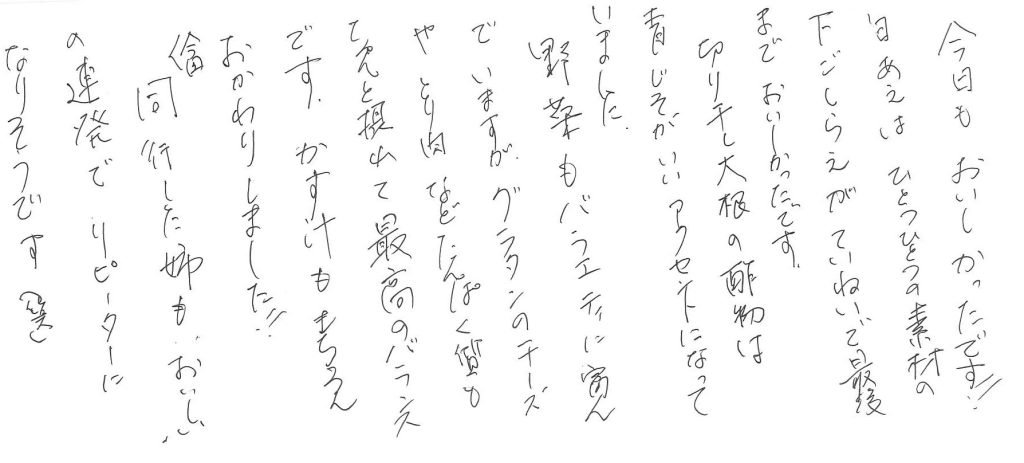 今日も おいしかったです!!
白あえは ひとつひとつの素材の
下ごしらえがていねいで最後
まで おいしかったです。
切り干し大根の酢物は
青じそがいいアクセントになって
いました。
野菜もバラエティに富ん
でいますが、グラタンのチーズ
や とり肉 などたんぱく質も
ちゃんと摂れて最高のバランス
です。かす汁も もちろん
おかわりしました!!
同行した姉も "おいしい"
の連発で リピーターに
なりそうです (笑)